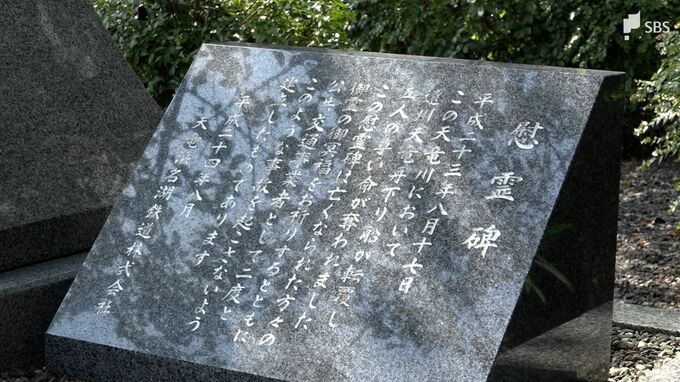 慰霊碑
平成二十三年八月十七日
この天竜川において
天竜舟下り船が転覆し
五人の尊い命が奪われました
この慰霊碑は亡くなられた方々の
御霊の御冥福をお祈りするとともに
公共交通事業者として二度と
このような事故を起こさないよう
したものであります
平成二十四年八月
天竜浜名湖鉄道株式会社
SBS